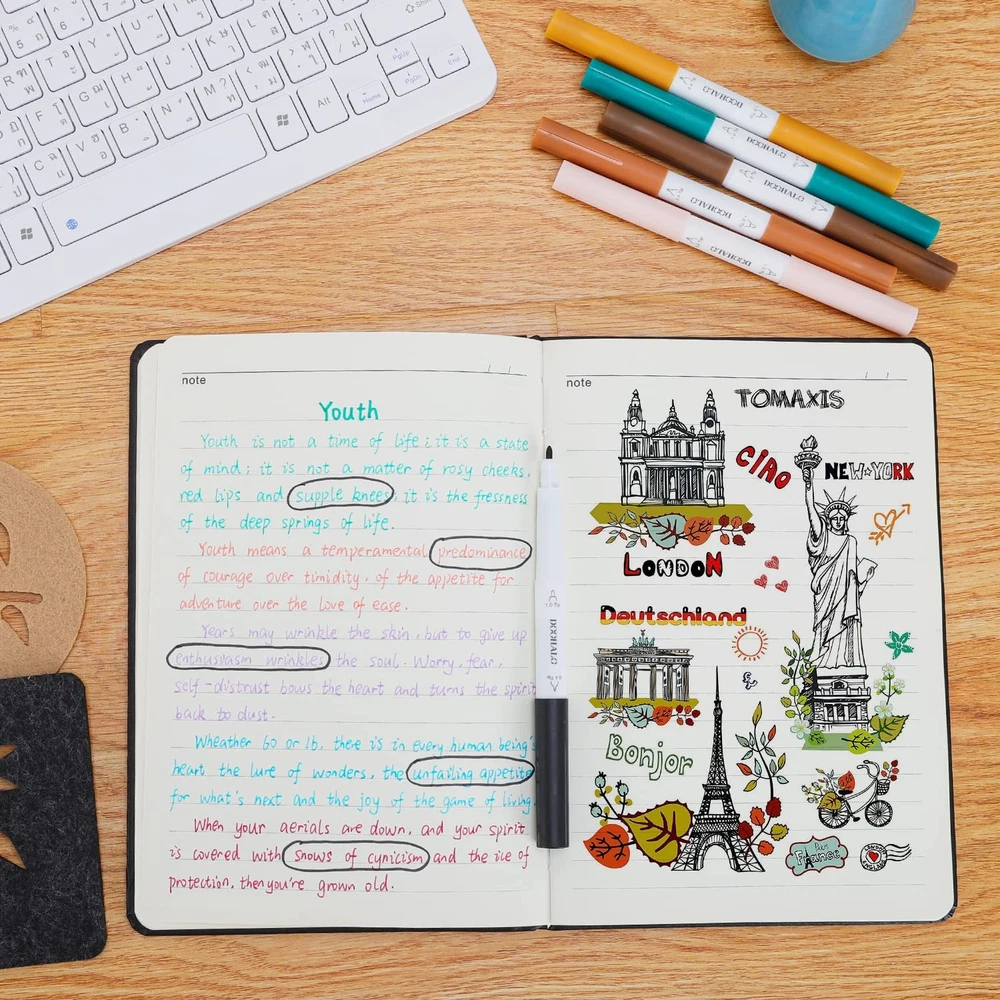 Alt
Home
PgUp
PgDn
End
Shift
DOOHALO
DOOHALO
DOOHALO
DOOHALO
DOOHALO
note
Youth
Youth is not a time of life; it is a state
of mind; it is not a matter of rosy cheeks,
red lips and supple knees, it is the fressness
of the deep springs of life.
Youth means a temperamental predominance
of courage over timidity, of the appetite for
adventure over the love of ease.
Years may wrinkle the skin, but to give up
enthusiasm wrinkles the soul. Worry, fear,
self-distrust bows the heart and turns the spirit
back to dust.
Wheather 60 or 16, there is in every human being's
heart the lure of wonders, the unfailing appetite
for what's next and the joy of the game of living.
When your aerials are down, and your spirit
is covered with snows of cynicism and the ice of
protection, then you're grown old.
DOOHALO
note
TOMAXIS
CIAO
NEW YORK
LONDON
Deutschland
Bonjor
France